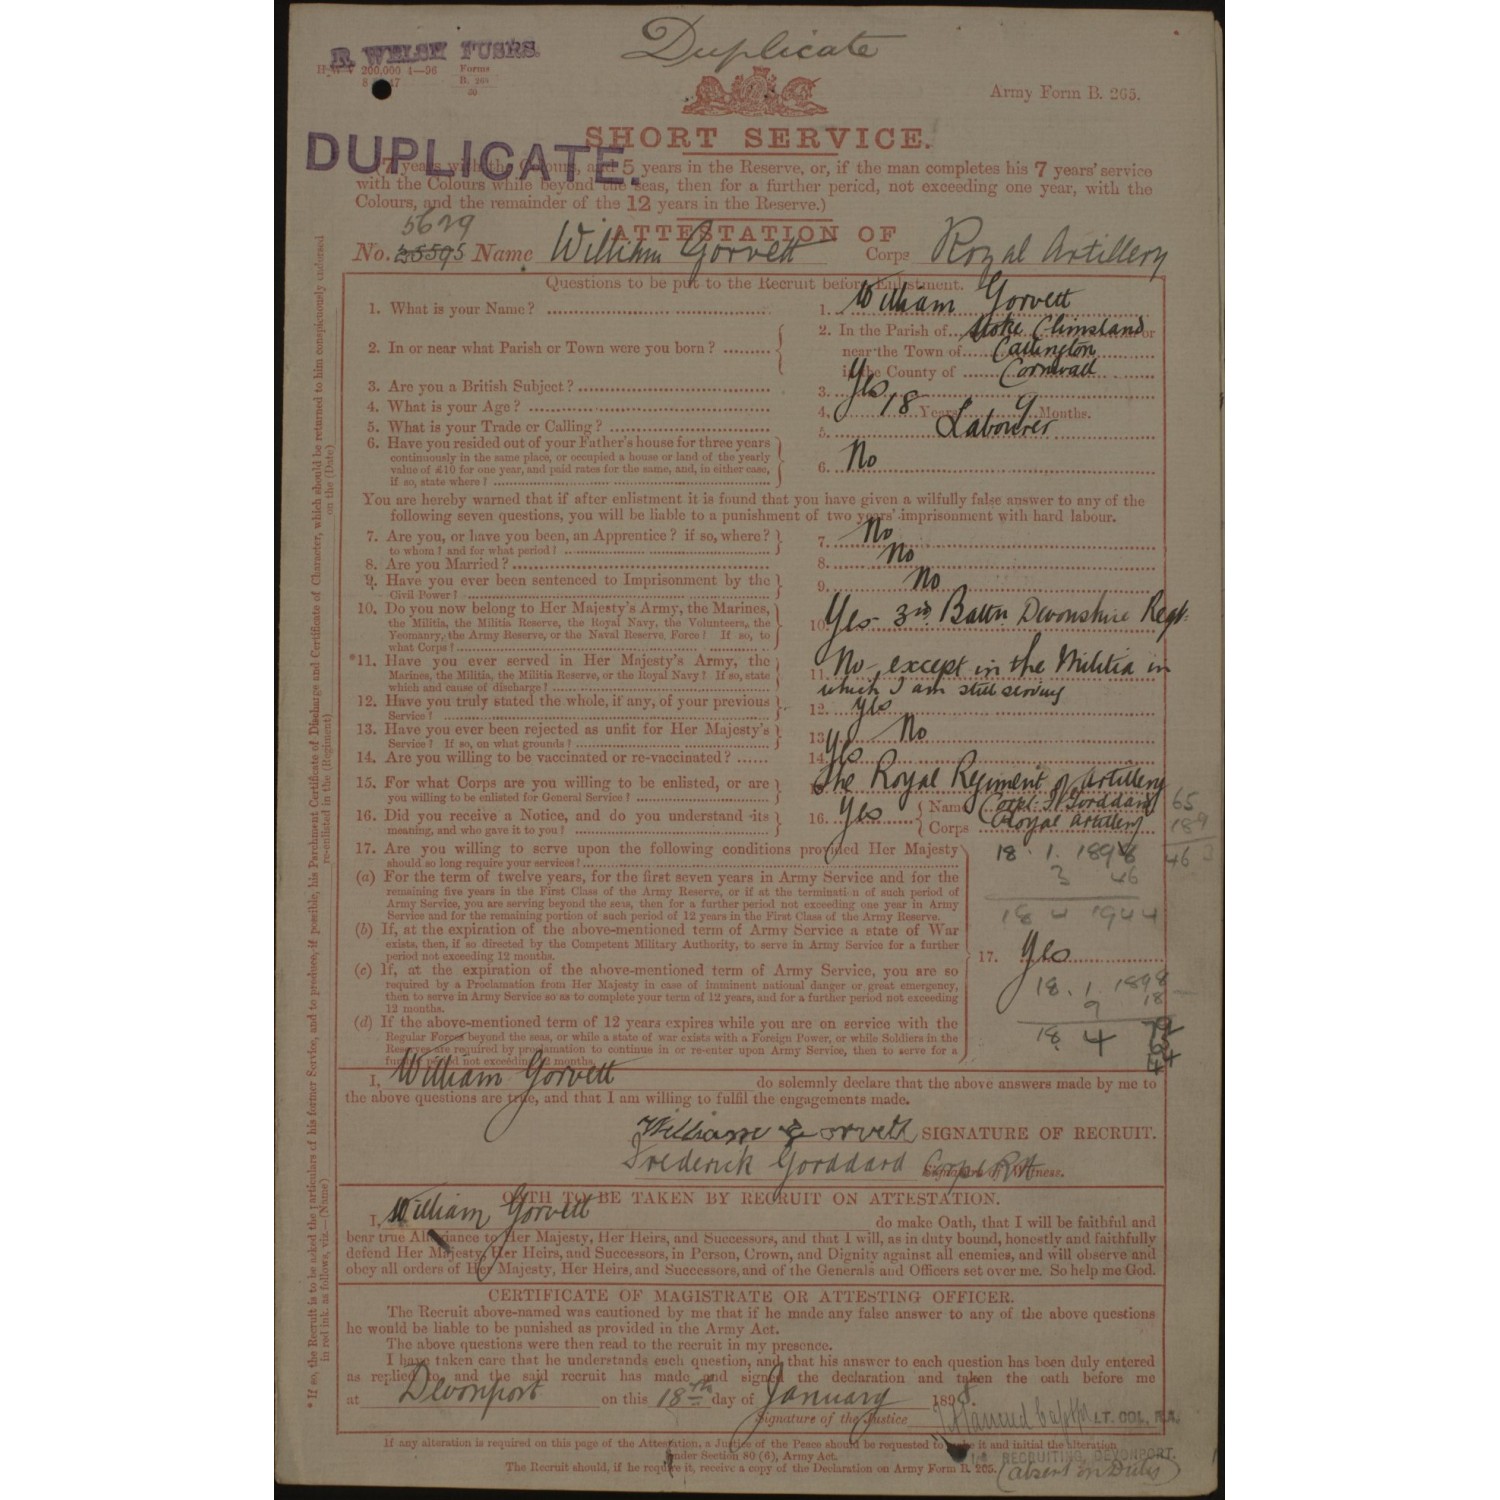 R. WELSH FUSRS.
Duplicate
200,000 1—96 Forms
Army Form B. 265.
SHORT SERVICE.
DUPLICATE.
(7 years with the Colours, and 5 years in the Reserve, or, if the man completes his 7 years' service
with the Colours while beyond the seas, then for a further period, not exceeding one year, with the
Colours, and the remainder of the 12 years in the Reserve.)
5629
ATTESTATION OF
No. Name William Gorvett Corps Royal Artillery
Questions to be put to the Recruit before Enlistment.
1. What is your Name? 1. William Gorvett
2. In or near what Parish or Town were you born? 2. In the Parish of Stoke Climsland or
near the Town of Callington
in the County of Cornwall
3. Are you a British Subject? 3. Yes
4. What is your Age? 4. 18 Years 9 Months.
5. What is your Trade or Calling? 5. Labourer
6. Have you resided out of your Father's house for three years
continuously in the same place, or occupied a house or land of the yearly
value of £10 for one year, and paid rates for the same, and, in either case,
if so, state where? 6. No
You are hereby warned that if after enlistment it is found that you have given a wilfully false answer to any of the
following seven questions, you will be liable to a punishment of two years' imprisonment with hard labour.
7. Are you, or have you been, an Apprentice? if so, where?
to whom? and for what period? 7. No
8. Are you Married? 8. No
9. Have you ever been sentenced to Imprisonment by the
Civil Power? 9. No
10. Do you now belong to Her Majesty's Army, the Marines,
the Militia, the Militia Reserve, the Royal Navy, the Volunteers, the
Yeomanry, the Army Reserve, or the Naval Reserve Force? If so, to
what Corps? 10. Yes - 3rd Battn Devonshire Regt.
*11. Have you ever served in Her Majesty's Army, the
Marines, the Militia, the Militia Reserve, or the Royal Navy? If so, state
which and cause of discharge? 11. No - except in the Militia in
which I am still serving
12. Have you truly stated the whole, if any, of your previous
Service? 12. Yes
13. Have you ever been rejected as unfit for Her Majesty's
Service? If so, on what grounds? 13. No
14. Are you willing to be vaccinated or re-vaccinated? 14. Yes
15. For what Corps are you willing to be enlisted, or are
you willing to be enlisted for General Service? The Royal Regiment of Artillery
16. Did you receive a Notice, and do you understand its
meaning, and who gave it to you? 16. Yes Name Corpl. F Gorddard
Corps Royal Artillery
65
189
46 3
17. Are you willing to serve upon the following conditions provided Her Majesty
should so long require your services?
18 . 1. 1898
3 46
18 4 1944
(a) For the term of twelve years, for the first seven years in Army Service and for the
remaining five years in the First Class of the Army Reserve, or if at the termination of such period of
Army Service, you are serving beyond the seas, then for a further period not exceeding one year in Army
Service and for the remaining portion of such period of 12 years in the First Class of the Army Reserve.
(b) If, at the expiration of the above-mentioned term of Army Service a state of War
exists, then, if so directed by the Competent Military Authority, to serve in Army Service for a further
period not exceeding 12 months.
17. Yes
(c) If, at the expiration of the above-mentioned term of Army Service, you are so
required by a Proclamation from Her Majesty in case of imminent national danger or great emergency,
then to serve in Army Service so as to complete your term of 12 years, and for a further period not exceeding
12 months.
18 . 1 1898
9 18
18. 4
(d) If the above-mentioned term of 12 years expires while you are on service with the
Regular Forces beyond the seas, or while a state of war exists with a Foreign Power, or while Soldiers in the
Reserves are required by proclamation to continue in or re-enter upon Army Service, then to serve for a
further period not exceeding 12 months.
I, William Gorvett do solemnly declare that the above answers made by me to
the above questions are true, and that I am willing to fulfil the engagements made.
William Gorvett SIGNATURE OF RECRUIT.
Frederick Gorddard Corpl RA Signature of Witness.
OATH TO BE TAKEN BY RECRUIT ON ATTESTATION.
I, William Gorvett do make Oath, that I will be faithful and
bear true Allegiance to Her Majesty, Her Heirs, and Successors, and that I will, as in duty bound, honestly and faithfully
defend Her Majesty, Her Heirs, and Successors, in Person, Crown, and Dignity against all enemies, and will observe and
obey all orders of Her Majesty, Her Heirs, and Successors, and of the Generals and Officers set over me. So help me God.
CERTIFICATE OF MAGISTRATE OR ATTESTING OFFICER.
The Recruit above-named was cautioned by me that if he made any false answer to any of the above questions
he would be liable to be punished as provided in the Army Act.
The above questions were then read to the recruit in my presence.
I have taken care that he understands each question, and that his answer to each question has been duly entered
as replied to, and the said recruit has made and signed the declaration and taken the oath before me
at Devonport on this 18th day of January 1898.
Signature of the Justice LT. COL., R.A.
If any alteration is required on this page of the Attestation, a Justice of the Peace should be requested to make it and initial the alteration
under Section 80 (6), Army Act.
RECRUITING, DEVONPORT.
The Recruit should, if he require it, receive a copy of the Declaration on Army Form B. 265.
(absent on Duty)
* If so, the Recruit is to be asked the particulars of his former Service, and to produce, if possible, his Parchment Certificate of Discharge and Certificate of Character, which should be returned to him conspicuously endorsed
in red ink, as follows, viz.—(Name) re-enlisted in the (Regiment) on the (Date)